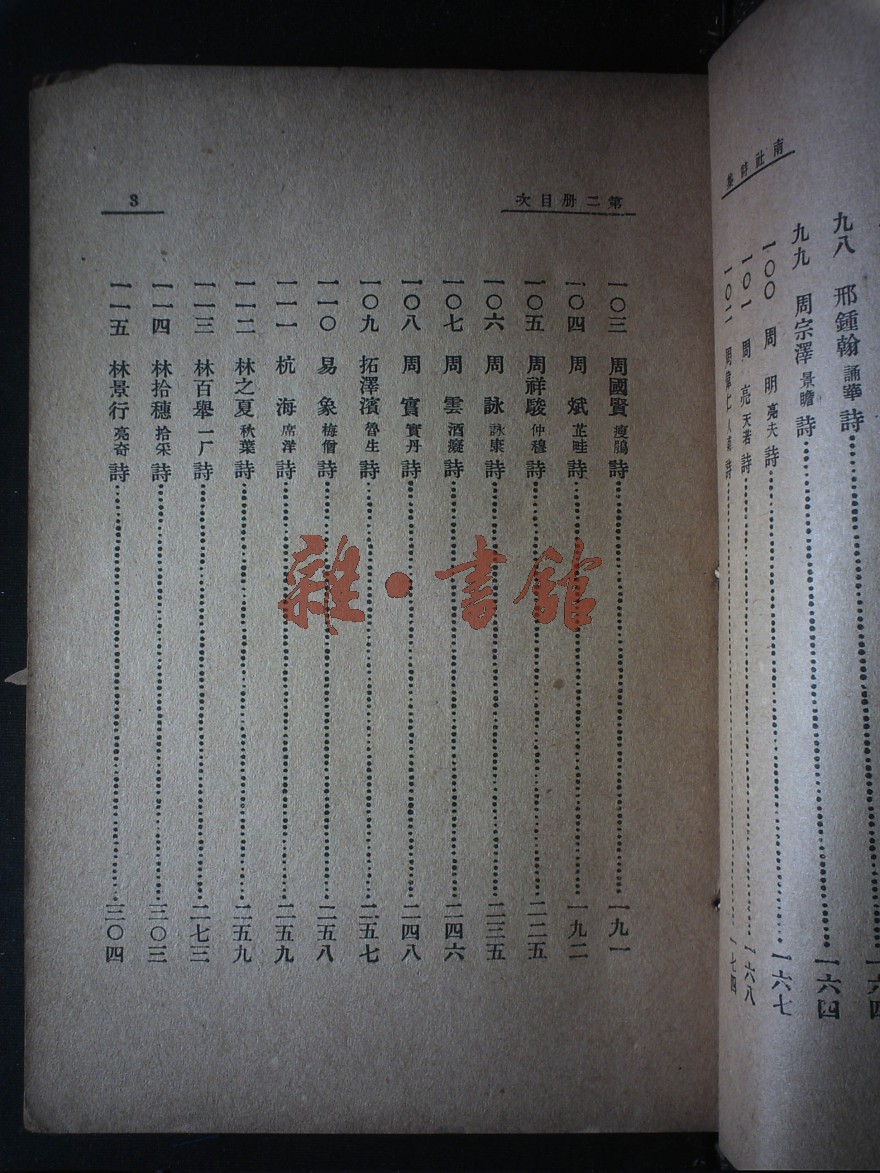 南社詩集
九八 邢鍾翰 誦華 詩 一六四
九九 周宗澤 景瞻 詩 一六四
一〇〇 周明 亮夫 詩 一六七
一〇一 周亮 天若 詩 一六八
一〇二 周偉仁 人菊 詩 一七四
第二册目次 3
一〇三 周國賢 瘦鵑 詩 一九一
一〇四 周斌 芷畦 詩 一九二
一〇五 周祥駿 仲穆 詩 二二五
一〇六 周詠 詠康 詩 二三五
一〇七 周雲 酒癡 詩 二四六
一〇八 周實 實丹 詩 二四八
一〇九 拓澤濱 魯生 詩 二五七
一一〇 易象 梅僧 詩 二五八
一一一 杭海 席洋 詩 二五九
一一二 林之夏 秋葉 詩 二五九
一一三 林百舉 一厂 詩 二七三
一一四 林拾穗 拾采 詩 三〇三
一一五 林景行 亮奇 詩 三〇四
雜·書館